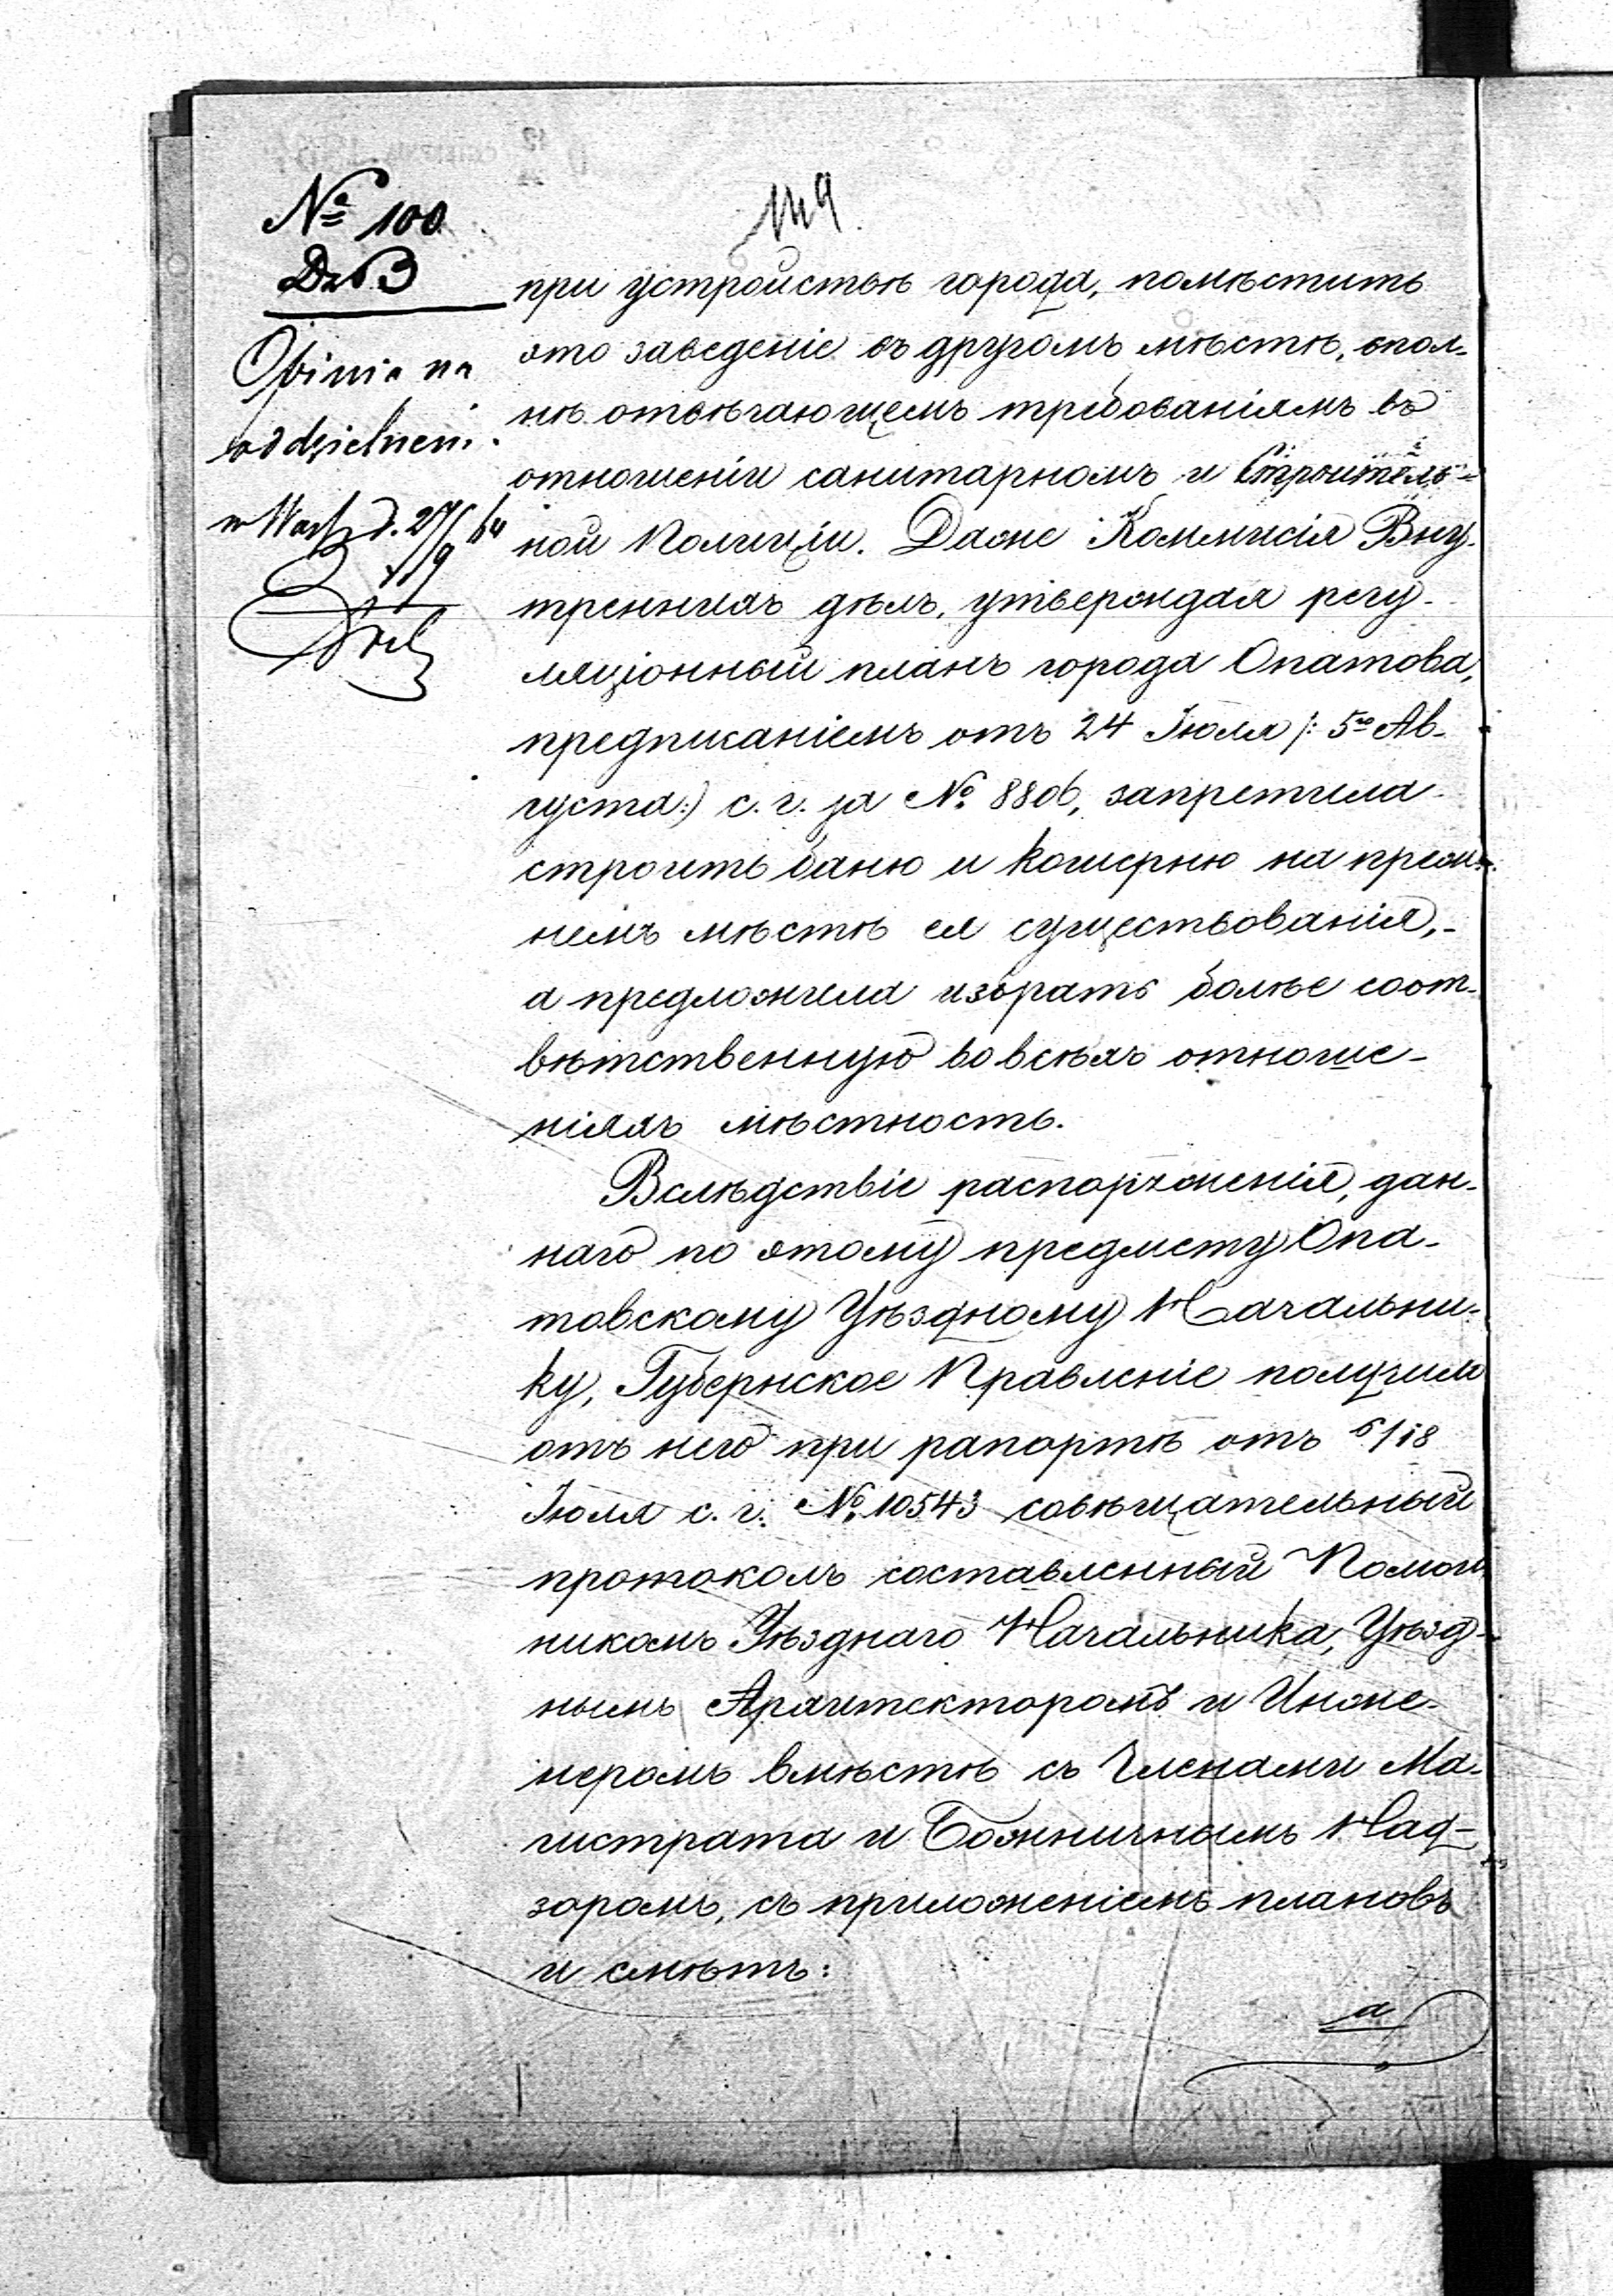 № 100
Dz B
Opinia na
oddzielnem
w Warsz d. 27/9
149.
при устройствѣ города, помѣстить
это заведеніе въ другомъ мѣстѣ, впол-
нѣ отвѣчающемъ требованіямъ въ
отношеніи санитарномъ и Строитель-
ной Полиціи. Даже Коммисія Вну-
треннихъ дѣлъ, утверждая регу-
ляціонный планъ города Опатова,
предписаніемъ отъ 24 Іюля /: 5го Ав-
густа:) с. г. за № 8806, запретила
строить баню и кошерню на преж-
немъ мѣстѣ ея существованія,-
а предложила избрать болѣе соот-
вѣтственную во всѣхъ отноше-
ніяхъ мѣстность.
Вслѣдствіе распоряженія, дан-
наго по этому предмету Опа-
товскому Уѣздному Начальни-
ку, Губернское Правленіе получило
отъ него при рапортѣ отъ 6/18
Іюля с. г. № 10543 совѣщательный
протоколъ составленный Помощ
никомъ Уѣзднаго Начальника, Уѣзд-
нымъ Архитекторомъ и Инже-
неромъ вмѣстѣ съ Членами Ма-
гистрата и Божничнымъ Над-
зоромъ, съ приложеніемъ плановъ
и смѣтъ:
а